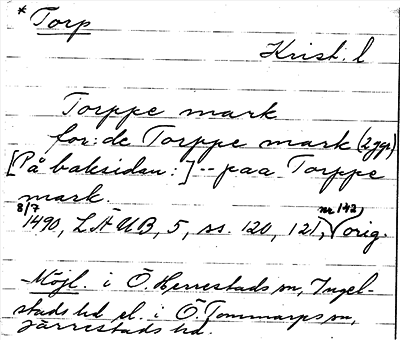 * Torp
Krist. l
Torppe mark
for: de Torppe mark (2 ggr)
[På baksidan:] -- paa Torppe
mark.
8/7 1490, LÄUB, 5, ss. 120, 121, nr 142, orig.
Möjl. i Ö. Herrestads sn, Ingel-
stads hd el. i Ö. Tommarps sn,
Järrestads hd.